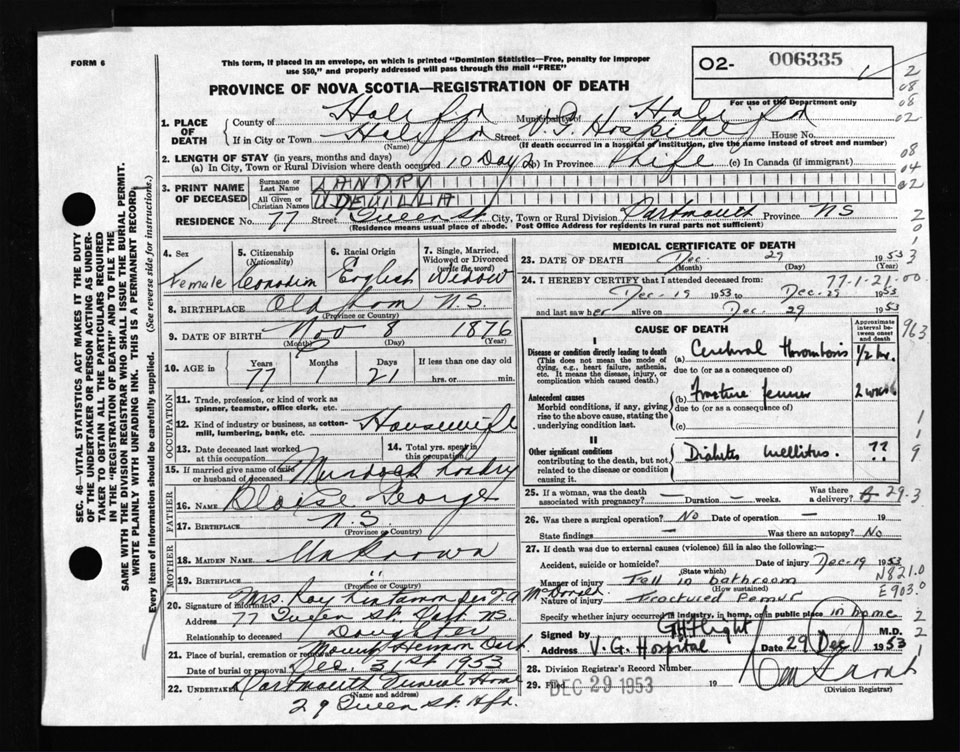 FORM 6
This form, if placed in an envelope, on which is printed "Dominion Statistics—Free, penalty for improper
use $50," and properly addressed will pass through the mail "FREE"
PROVINCE OF NOVA SCOTIA—REGISTRATION OF DEATH
O2- 006335
For use of the Department only
2
08
08
02
08
04
02
2
0
1
3
1. PLACE OF DEATH
County of Halifax Municipality of Halifax
If in City or Town Halifax Street V.G. Hospital House No.
(Name) (If death occurred in a hospital of institution, give the name instead of street and number)
2. LENGTH OF STAY (in years, months and days)
(a) In City, Town or Rural Division where death occurred 10 Days (b) In Province Life (c) In Canada (if immigrant)
3. PRINT NAME OF DECEASED
Surname or Last Name LANDRY
All Given or Christian Names
RESIDENCE No. 77 Street Queen St City, Town or Rural Division Dartmouth Province NS
(Residence means usual place of abode. Post Office Address for residents in rural parts not sufficient)
4. Sex Female
5. Citizenship (Nationality) Canadian
6. Racial Origin English
7. Single, Married, Widowed or Divorced (write the word) Widow
8. BIRTHPLACE Old N.S.
(Province or Country)
9. DATE OF BIRTH Nov 8 1876
(Month) (Day) (Year)
10. AGE in Years 77 Months 1 Days 21 If less than one day old
hrs. or min.
OCCUPATION
11. Trade, profession, or kind of work as spinner, teamster, office clerk, etc.
12. Kind of industry or business, as cotton-mill, lumbering, bank, etc. Housewife
13. Date deceased last worked at this occupation
14. Total yrs. spent in this occupation
15. If married give name of wife or husband of deceased Murdoch Landry
FATHER
16. Name George
17. BIRTHPLACE N.S.
(Province or Country)
MOTHER
18. MAIDEN NAME Unknown
19. BIRTHPLACE "
(Province or Country)
20. Signature of informant Mrs. Roy
McDonald
Address 77 Queen St. Dart. NS.
Relationship to deceased Daughter
21. Place of burial, cremation or removal Mount Hermon Dart
Date of burial or removal Dec. 31st 1953
22. UNDERTAKER Dartmouth Funeral Home
(Name and address)
29 Queen St. Hfx.
MEDICAL CERTIFICATE OF DEATH
23. DATE OF DEATH Dec 29 1953
(Month) (Day) (Year)
24. I HEREBY CERTIFY that I attended deceased from: 77-1-21.00
Dec-19 1953 to Dec-29 1953
and last saw her alive on Dec 29 1953
CAUSE OF DEATH
Approximate interval between onset and death
963
I
Disease or condition directly leading to death
(This does not mean the mode of dying, e.g., heart failure, asthenia, etc. It means the disease, injury, or complication which caused death.)
(a) Cerebral thrombosis 1/2 hr.
due to (or as a consequence of)
Antecedent causes
Morbid conditions, if any, giving rise to the above cause, stating the underlying condition last.
(b) Fracture femur
due to (or as a consequence of)
(c)
II
Other significant conditions
contributing to the death, but not related to the disease or condition causing it.
Diabetes mellitus. ??
1
1
9
25. If a woman, was the death associated with pregnancy? — Duration — weeks. Was there a delivery? 29.3
26. Was there a surgical operation? No Date of operation — 19
State findings — Was there an autopsy? No
27. If death was due to external causes (violence) fill in also the following:—
Accident, suicide or homicide? Date of injury Dec-19 1953
(State which)
Manner of injury Fell in bathroom N821.0
(How sustained)
Nature of injury Fractured Femur E903.0
Specify whether injury occurred in industry, in home, or in public place in home
Signed by M.D.
Address V.G. Hospital Date 29 Dec 1953
28. Division Registrar's Record Number
29. Filed DEC 29 1953 19
(Division Registrar)
2
2
1
SEC. 46—VITAL STATISTICS ACT MAKES IT THE DUTY
OF THE UNDERTAKER OR PERSON ACTING AS UNDER-
TAKER TO OBTAIN ALL THE PARTICULARS REQUIRED
IN THE "REGISTRATION OF DEATH" AND TO FILE THE
SAME WITH THE DIVISION REGISTRAR WHO SHALL ISSUE THE BURIAL PERMIT.
WRITE PLAINLY WITH UNFADING INK. THIS IS A PERMANENT RECORD.
Every item of information should be carefully supplied. (See reverse side for instructions.)